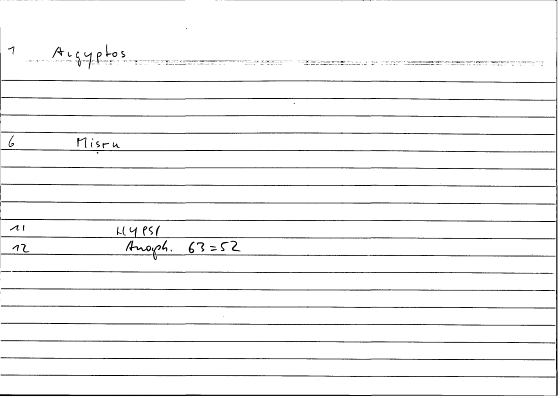 1 Aigyptos
6 Miṣru
11 HYPSI
12 Anoph. 63=52